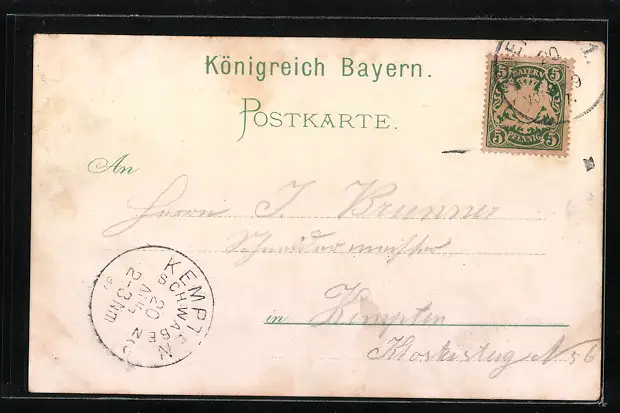 Königreich Bayern.
POSTKARTE.
5 BAYERN 5
5 PFENNIG 5
An
Herrn J. Brunner
Schneidermeister
in Kempten
N 56
KEMPTEN
SCHWABEN
20
2-3 NM